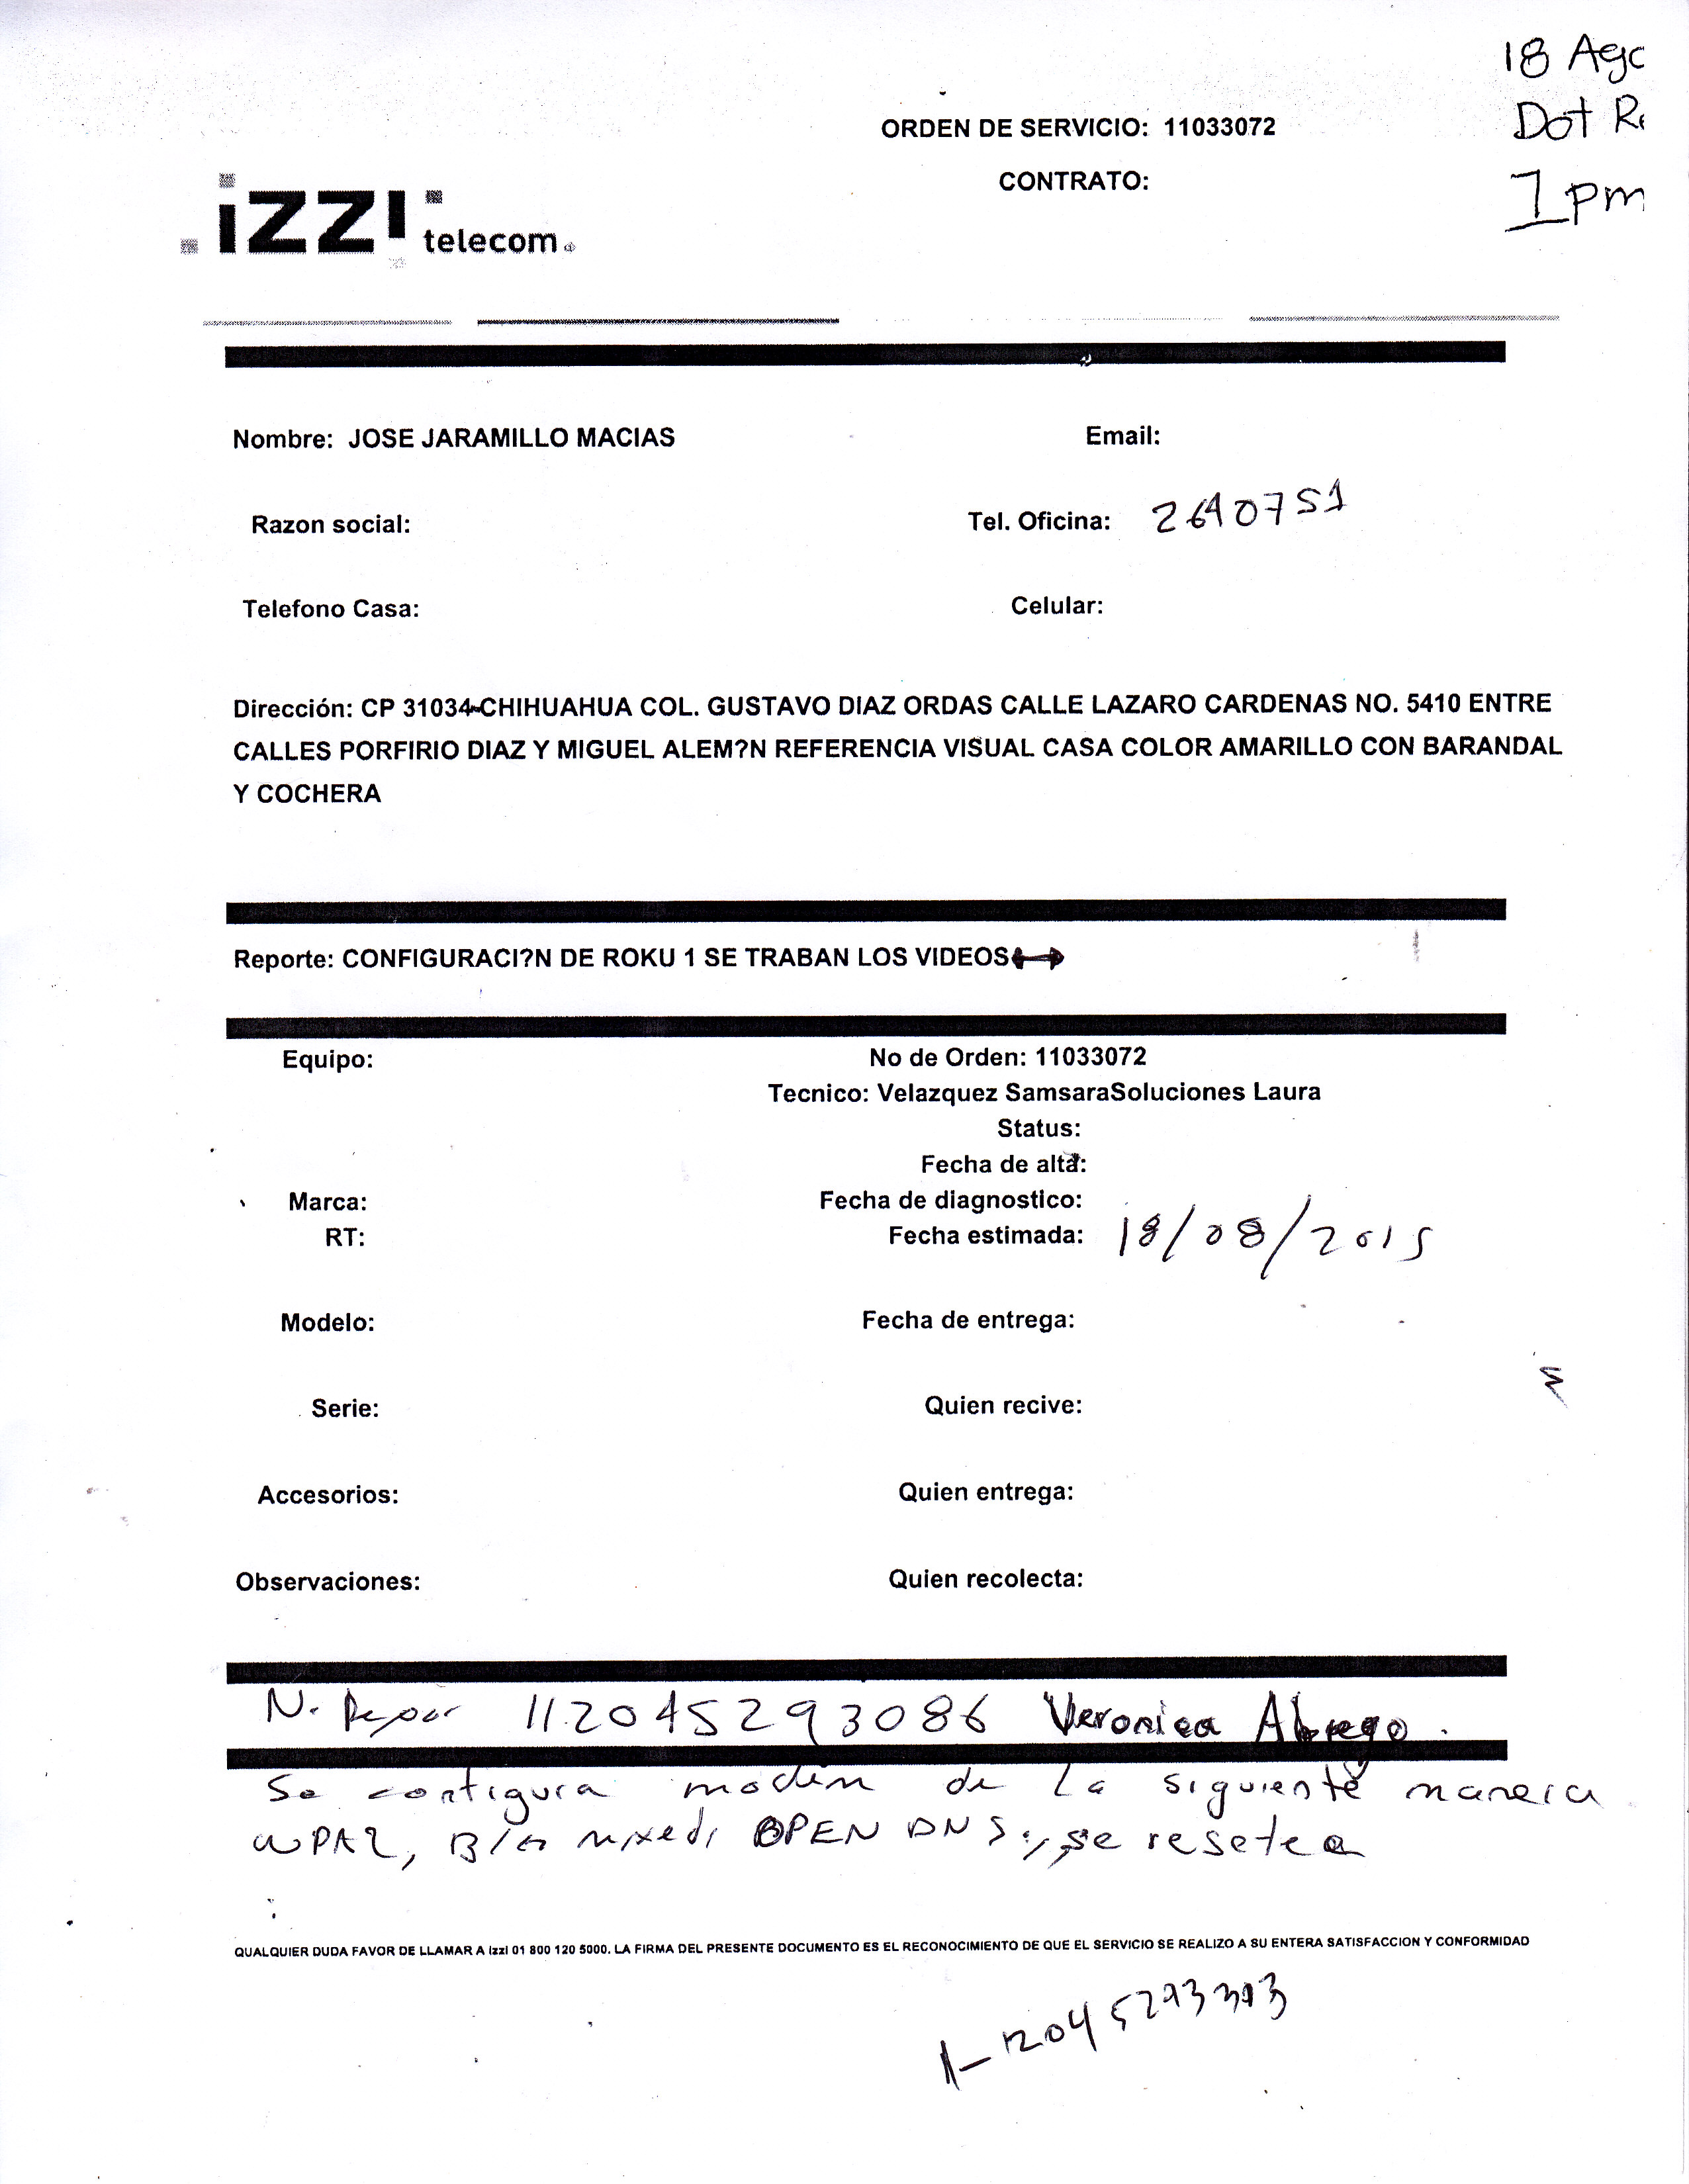 18 Ago
Dot R
1 pm
ORDEN DE SERVICIO: 11033072
CONTRATO:
izzi telecom
Nombre: JOSE JARAMILLO MACIAS
Email:
Razon social:
Tel. Oficina: 2640751
Telefono Casa:
Celular:
Dirección: CP 31034-CHIHUAHUA COL. GUSTAVO DIAZ ORDAS CALLE LAZARO CARDENAS NO. 5410 ENTRE
CALLES PORFIRIO DIAZ Y MIGUEL ALEM?N REFERENCIA VISUAL CASA COLOR AMARILLO CON BARANDAL
Y COCHERA
Reporte: CONFIGURACI?N DE ROKU 1 SE TRABAN LOS VIDEOS
Equipo:
No de Orden: 11033072
Tecnico: Velazquez SamsaraSoluciones Laura
Status:
Fecha de alta:
Marca:
Fecha de diagnostico:
RT:
Fecha estimada: 18/08/2015
Modelo:
Fecha de entrega:
Serie:
Quien recive:
Accesorios:
Quien entrega:
Observaciones:
Quien recolecta:
N. Repor 112045293086 Veronica Abrego.
Se configura modem de la siguiente manera
WPA2, B/G mixed, OPEN DNS, se resetea
QUALQUIER DUDA FAVOR DE LLAMAR A izzi 01 800 120 5000. LA FIRMA DEL PRESENTE DOCUMENTO ES EL RECONOCIMIENTO DE QUE EL SERVICIO SE REALIZO A SU ENTERA SATISFACCION Y CONFORMIDAD